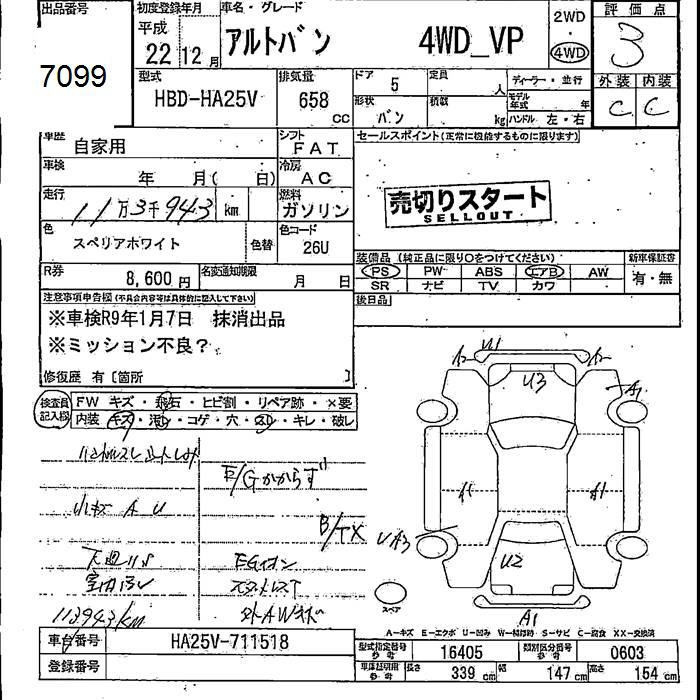 出品番号 初度登録年月 車名・グレード 評価点
平成 2WD
22年12月 アルトバン 4WD_VP 4WD 3
7099
型式 排気量 ドア 5 定員 人 ディーラー・並行 外装 内装
HBD-HA25V 658 cc 形状 バン 積載 kg モデル年式 年 C C
ハンドル 左・右
車歴 自家用 シフト FAT セールスポイント(正常に機能するものに限ります)
車検 年 月( 日) 冷房 AC
走行 11万3千943 km 燃料 ガソリン 売切りスタート
SELLOUT
色 スペリアホワイト 色替 色コード 26U
装備品(純正品に限り○をつけてください) 新車保証書
R券 8,600円 名変通知期限 月 日 PS PW ABS エアB AW 有・無
SR ナビ TV カワ
注意事項申告欄(不具合内容等は具体的に記入して下さい) 後日品
※車検R9年1月7日 抹消出品
※ミッション不良?
修復歴 有 [箇所 ]
検査員記入欄 FW キズ・飛石・ヒビ割・リペア跡・×要
内装 キズ・汚れ・コゲ・穴・スレ・キレ・破レ
U1
U3
A1
E/Gかからず
小キズ A U
B/TX
UA3
U2
113943km
A1
スペア
A-キズ E-エクボ U-凹み W-補修跡 S-サビ C-腐食 XX-交換済
車台番号 HA25V-711518 型式指定番号 参考 16405 類別区分番号 参考 0603
登録番号 車庫証明用 参考 長さ 339 cm 幅 147 cm 高さ 154 cm